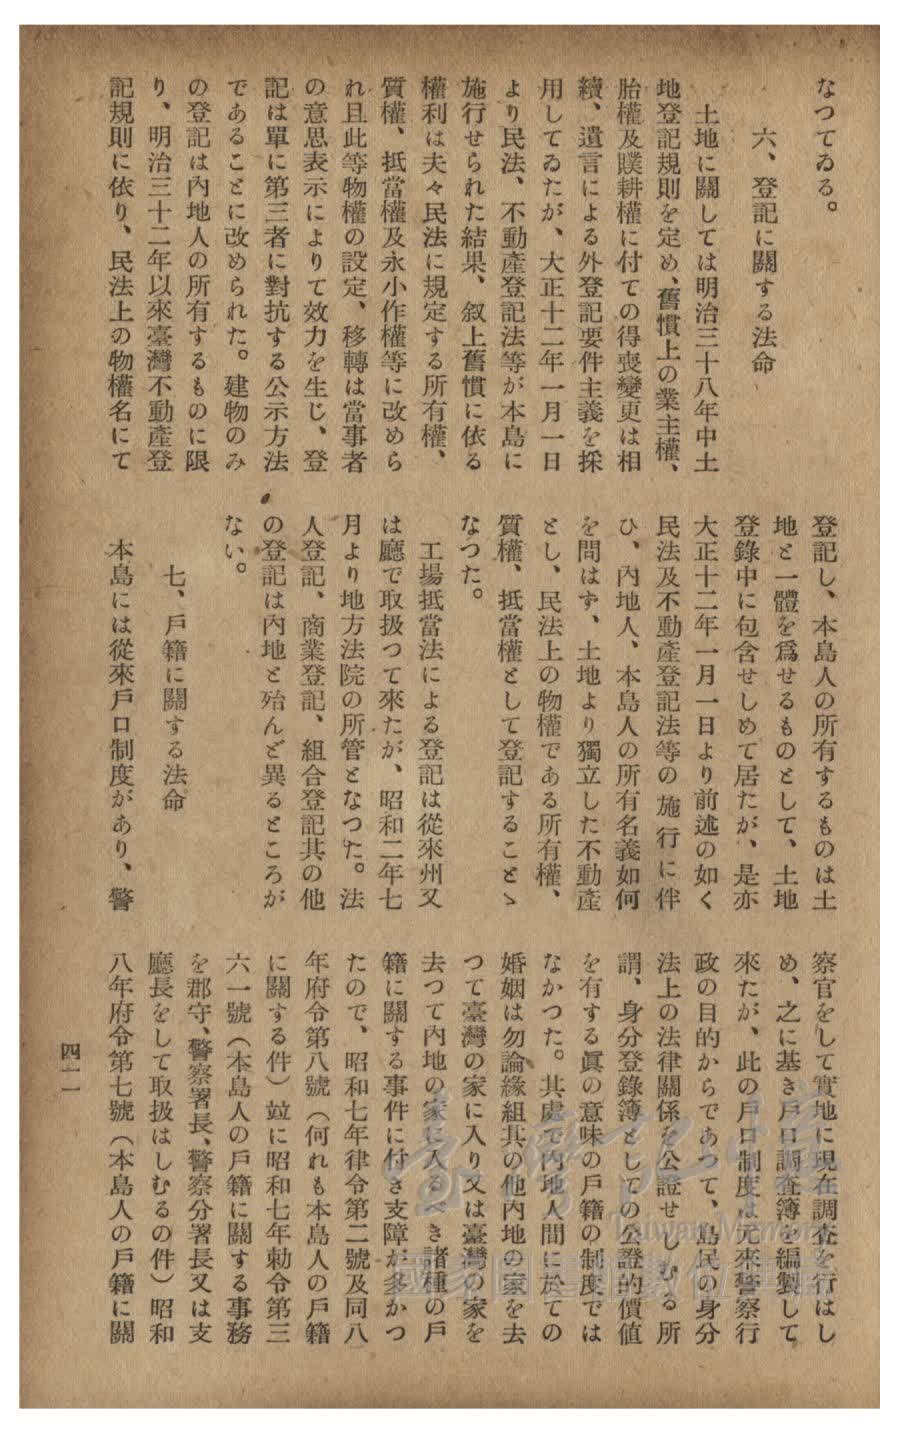 なつてゐる。
六、登記に關する法命
土地に關しては明治三十八年中土
地登記規則を定め、舊慣上の業主權、
胎權及贌耕權に付ての得喪變更は相
續、遺言による外登記要件主義を採
用してゐたが、大正十二年一月一日
より民法、不動產登記法等が本島に
施行せられた結果、叙上舊慣に依る
權利は夫々民法に規定する所有權、
質權、抵當權及永小作權等に改めら
れ且此等物權の設定、移轉は當事者
の意思表示によりて效力を生じ、登
記は單に第三者に對抗する公示方法
であることに改められた。建物のみ
の登記は內地人の所有するものに限
り、明治三十二年以來臺灣不動產登
記規則に依り、民法上の物權名にて
登記し、本島人の所有するものは土
地と一體を爲せるものとして、土地
登錄中に包含せしめて居たが、是亦
大正十二年一月一日より前述の如く
民法及不動產登記法等の施行に伴
ひ、內地人、本島人の所有名義如何
を問はず、土地より獨立した不動產
とし、民法上の物權である所有權、
質權、抵當權として登記することゝ
なつた。
工場抵當法による登記は從來州又
は廳で取扱つて來たが、昭和二年七
月より地方法院の所管となつた。法
人登記、商業登記、組合登記其の他
の登記は內地と殆んど異るところが
ない。
七、戶籍に關する法命
本島には從來戶口制度があり、警
察官をして實地に現在調査を行はし
め、之に基き戶口調査簿を編製して
來たが、此の戶口制度は元來警察行
政の目的からであつて、島民の身分
法上の法律關係を公證せしむる所
謂、身分登錄簿としての公證的價値
を有する眞の意味の戶籍の制度では
なかつた。其處で內地人間に於ての
婚姻は勿論緣組其の他內地の家を去
つて臺灣の家に入り又は臺灣の家を
去つて內地の家に入るべき諸種の戶
籍に關する事件に付き支障が多かつ
たので、昭和七年律令第二號及同八
年府令第八號（何れも本島人の戶籍
に關する件）竝に昭和七年勅令第三
六一號（本島人の戶籍に關する事務
を郡守、警察署長、警察分署長又は支
廳長をして取扱はしむるの件）昭和
八年府令第七號（本島人の戶籍に關
四一
臺灣記憶
Taiwan Memory
國家圖書館數位典藏